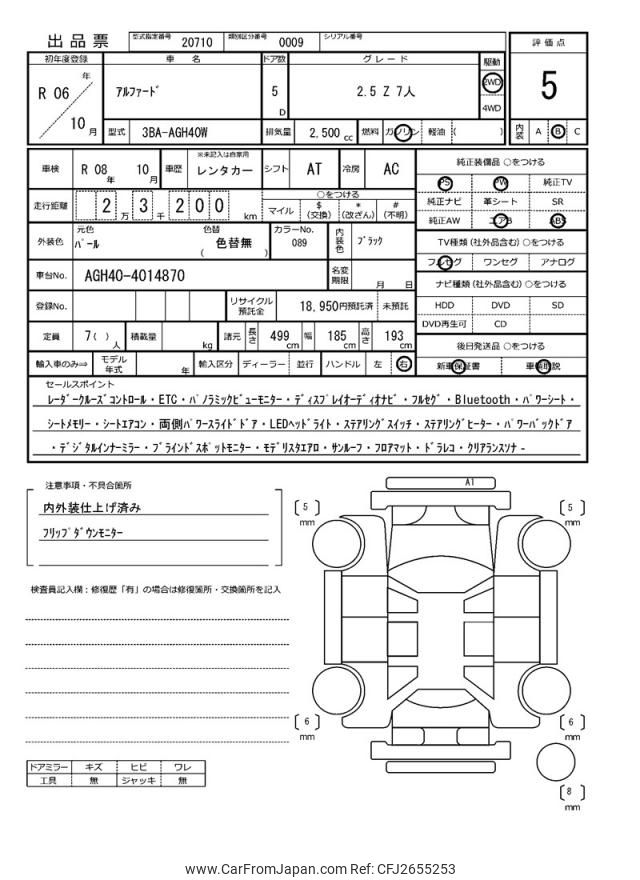 出品票 型式指定番号 20710 類別区分番号 0009 シリアル番号
評価点
5
内装 A B C
初年度登録 車名 ドア数 グレード 駆動
R 06 年 10 月 アルファード 5 D 2.5 Z 7人 2WD 4WD
型式 3BA-AGH40W 排気量 2,500 cc 燃料 ガソリン 軽油 ( )
車検 R 08 年 10 月 車歴 ※未記入は自家用 レンタカー シフト AT 冷房 AC
走行距離 2 万 3 千 2 0 0 km ○をつける
マイル $ (交換) * (改ざん) # (不明)
外装色 元色 パール 色替 色替無 ( ) カラーNo. 089 内装色 ブラック
車台No. AGH40-4014870 名変期限 月 日
登録No. リサイクル預託金 18,950円預託済 未預託
定員 7( ) 人 積載量 kg 諸元 長さ 499 cm 幅 185 cm 高さ 193 cm
輸入車のみ⇨ モデル年式 年 輸入区分 ディーラー 並行 ハンドル 左 右
純正装備品 ○をつける
PS PW 純正TV
純正ナビ 革シート SR
純正AW エアB ABS
TV種類(社外品含む) ○をつける
フルセグ ワンセグ アナログ
ナビ種類(社外品含む) ○をつける
HDD DVD SD
DVD再生可 CD
後日発送品 ○をつける
新車保証書 車輌取説
セールスポイント
レーダークルーズコントロール・ETC・パノラミックビューモニター・ディスプレイオーディオナビ・フルセグ・Bluetooth・パワーシート・
シートメモリー・シートエアコン・両側パワースライドドア・LEDヘッドライト・ステアリングスイッチ・ステアリングヒーター・パワーバックドア
・デジタルインナーミラー・ブラインドスポットモニター・モデリスタエアロ・サンルーフ・フロアマット・ドラレコ・クリアランスソナ-
注意事項・不具合箇所
内外装仕上げ済み
フリップダウンモニター
検査員記入欄：修復歴「有」の場合は修復箇所・交換箇所を記入
ドアミラー キズ ヒビ ワレ
工具 無 ジャッキ 無
A1
5 mm
5 mm
6 mm
6 mm
8 mm
www.CarFromJapan.com Ref: CFJ2655253